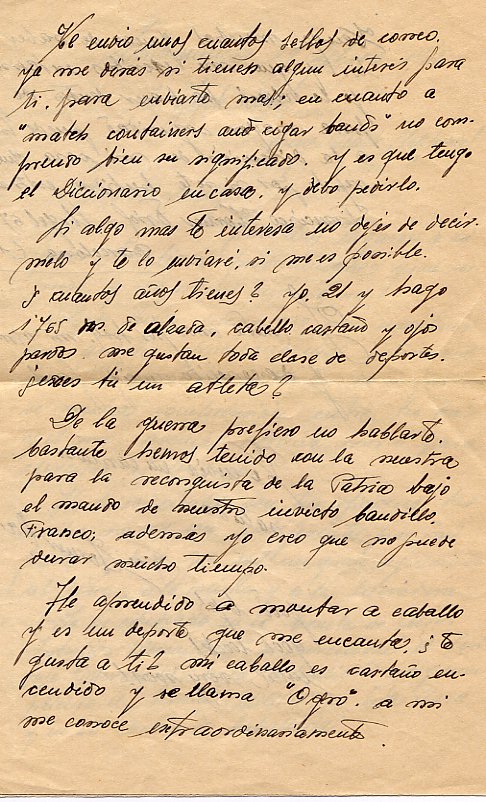 Te envio unos cuantos sellos de correo.
ya me dirás si tienen algun interes para
ti. para enviarte mas; en cuanto a
"match containers and cigar bands" no com-
prendo bien su significado. y es que tengo
el Diccionario en casa. y debo pedirlo.
Si algo mas te interesa no dejes de decir-
melo y te lo enviaré, si me es posible.
¿ cuantos años tienes? yo, 21 y hago
1'765 ms. de alzada, cabello castaño y ojos
pardos. me gustan toda clase de deportes.
¿eres tú un atleta?
De la guerra prefiero no hablarte.
bastante hemos tenido con la nuestra
para la reconquista de la Patria bajo
el mando de nuestro invicto Caudillo
Franco; además yo creo que no puede
durar mucho tiempo.
He aprendido a montar a caballo
y es un deporte que me encanta ¿te
gusta a ti? mi caballo es castaño en-
cendido y se llama "Ogro". a mi
me conoce extraordinariamente.